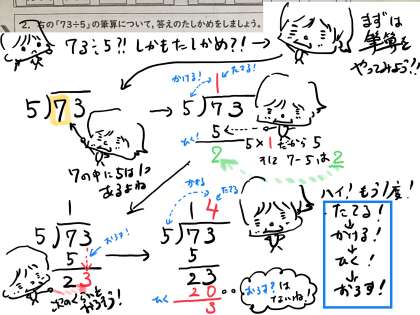 2. 右の「73÷5」の筆算について、答えのたしかめをしましょう。
73÷5?! しかもたしかめ?! →
まずは
筆算を
やってみよう!!
5)73
7の中に5は1つ
あるよね
かける! たてる!
1
5)73
5
ひく!
2
5×1だから5
次に 7-5は2
1
5)73
5
23
おろす!
次のくらいを
やろう!
かける たてる
14
5)73
5
23
20
ひく
3
おろす!は
ないね。
ハイ!もう1度!
たてる!
↓
かける!
↓
ひく!
↓
おろす!